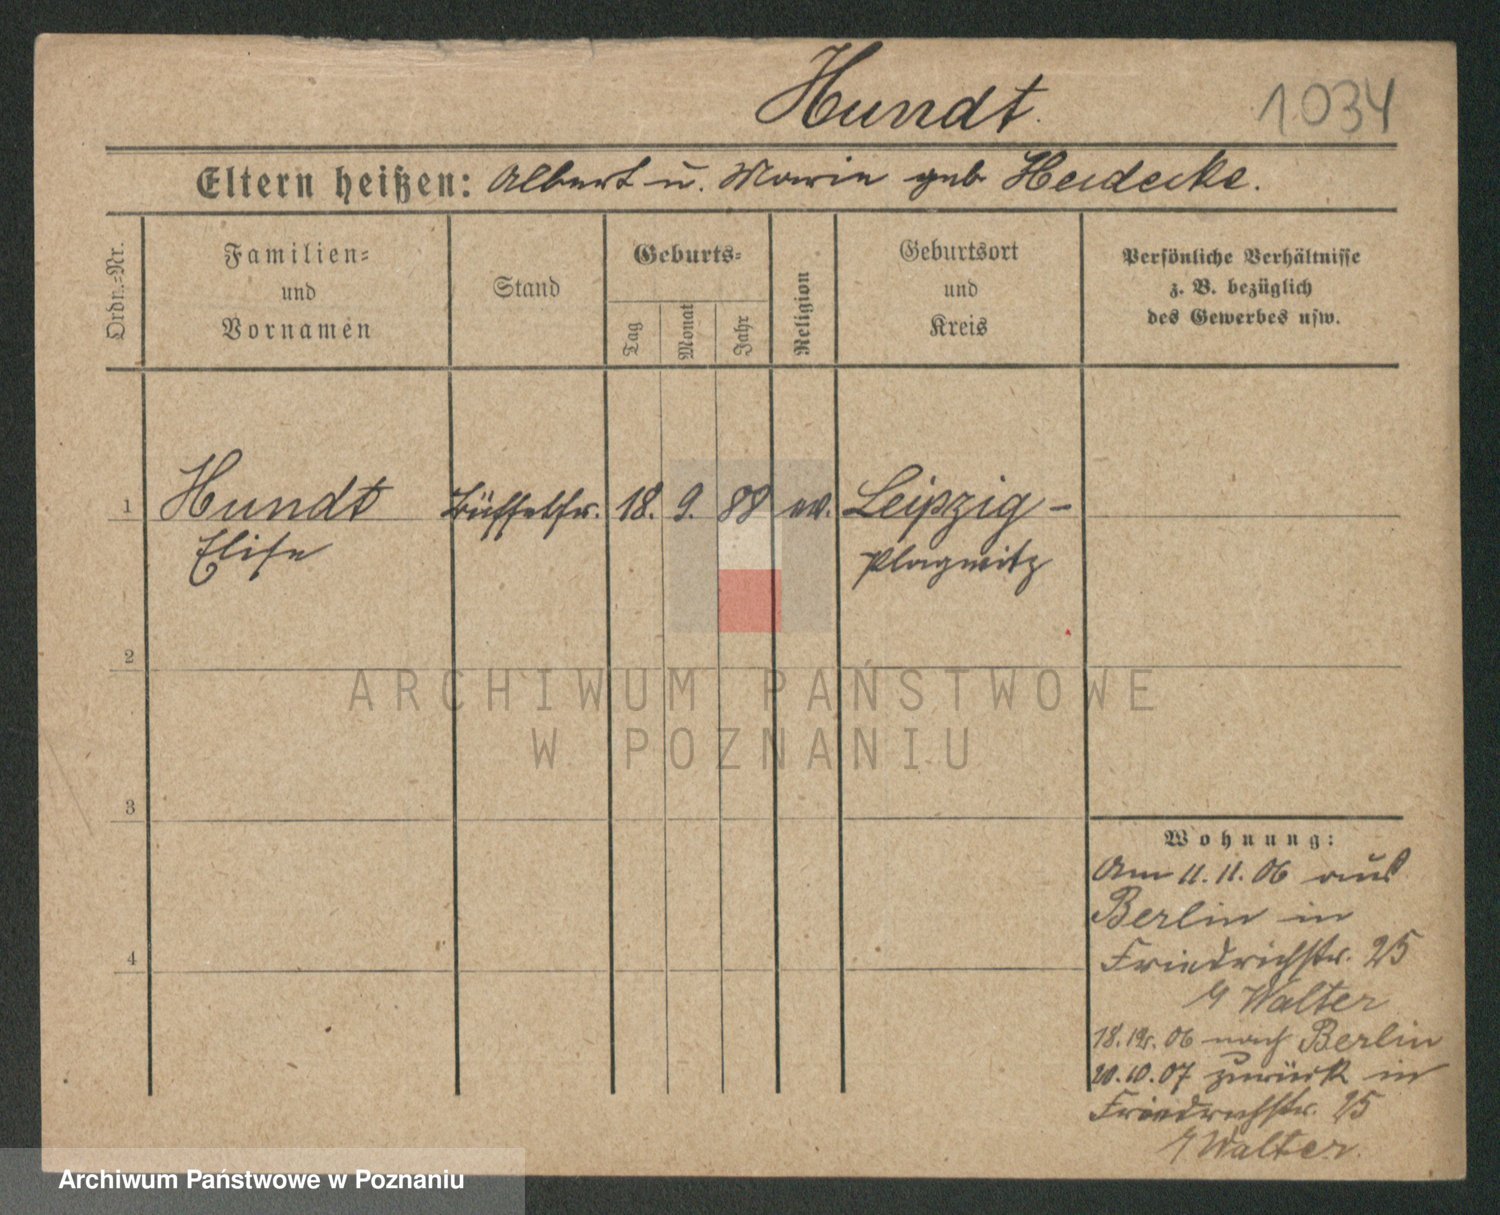 Hundt.
1034
Eltern heißen: Albert u. Marie geb Heidecke.
Ordn.-Nr.
Familien-
und
Vornamen
Stand
Geburts-
Tag
Monat
Jahr
Religion
Geburtsort
und
Kreis
Persönliche Verhältnisse
z. B. bezüglich
des Gewerbes usw.
1 Hundt Büffetfr. 18. 9. 88 ev. Leipzig-
Elise Plagwitz
2
3
4
Wohnung:
Am 11. 11. 06 aus
Berlin in
Friedrichstr. 25
Walter
18. 12. 06 nach Berlin
20. 10. 07 zurück in
Friedrichstr. 25
Walter.
ARCHIWUM PAŃSTWOWE
W POZNANIU
Archiwum Państwowe w Poznaniu